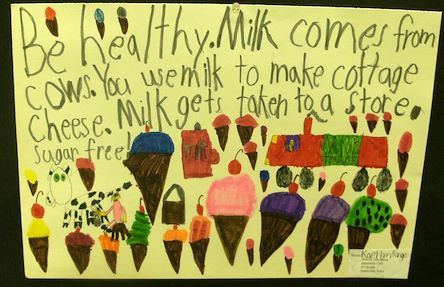 Be healthy. Milk comes from
cows. You use milk to make cottage
cheese. Milk gets taken to a store.
sugar free!